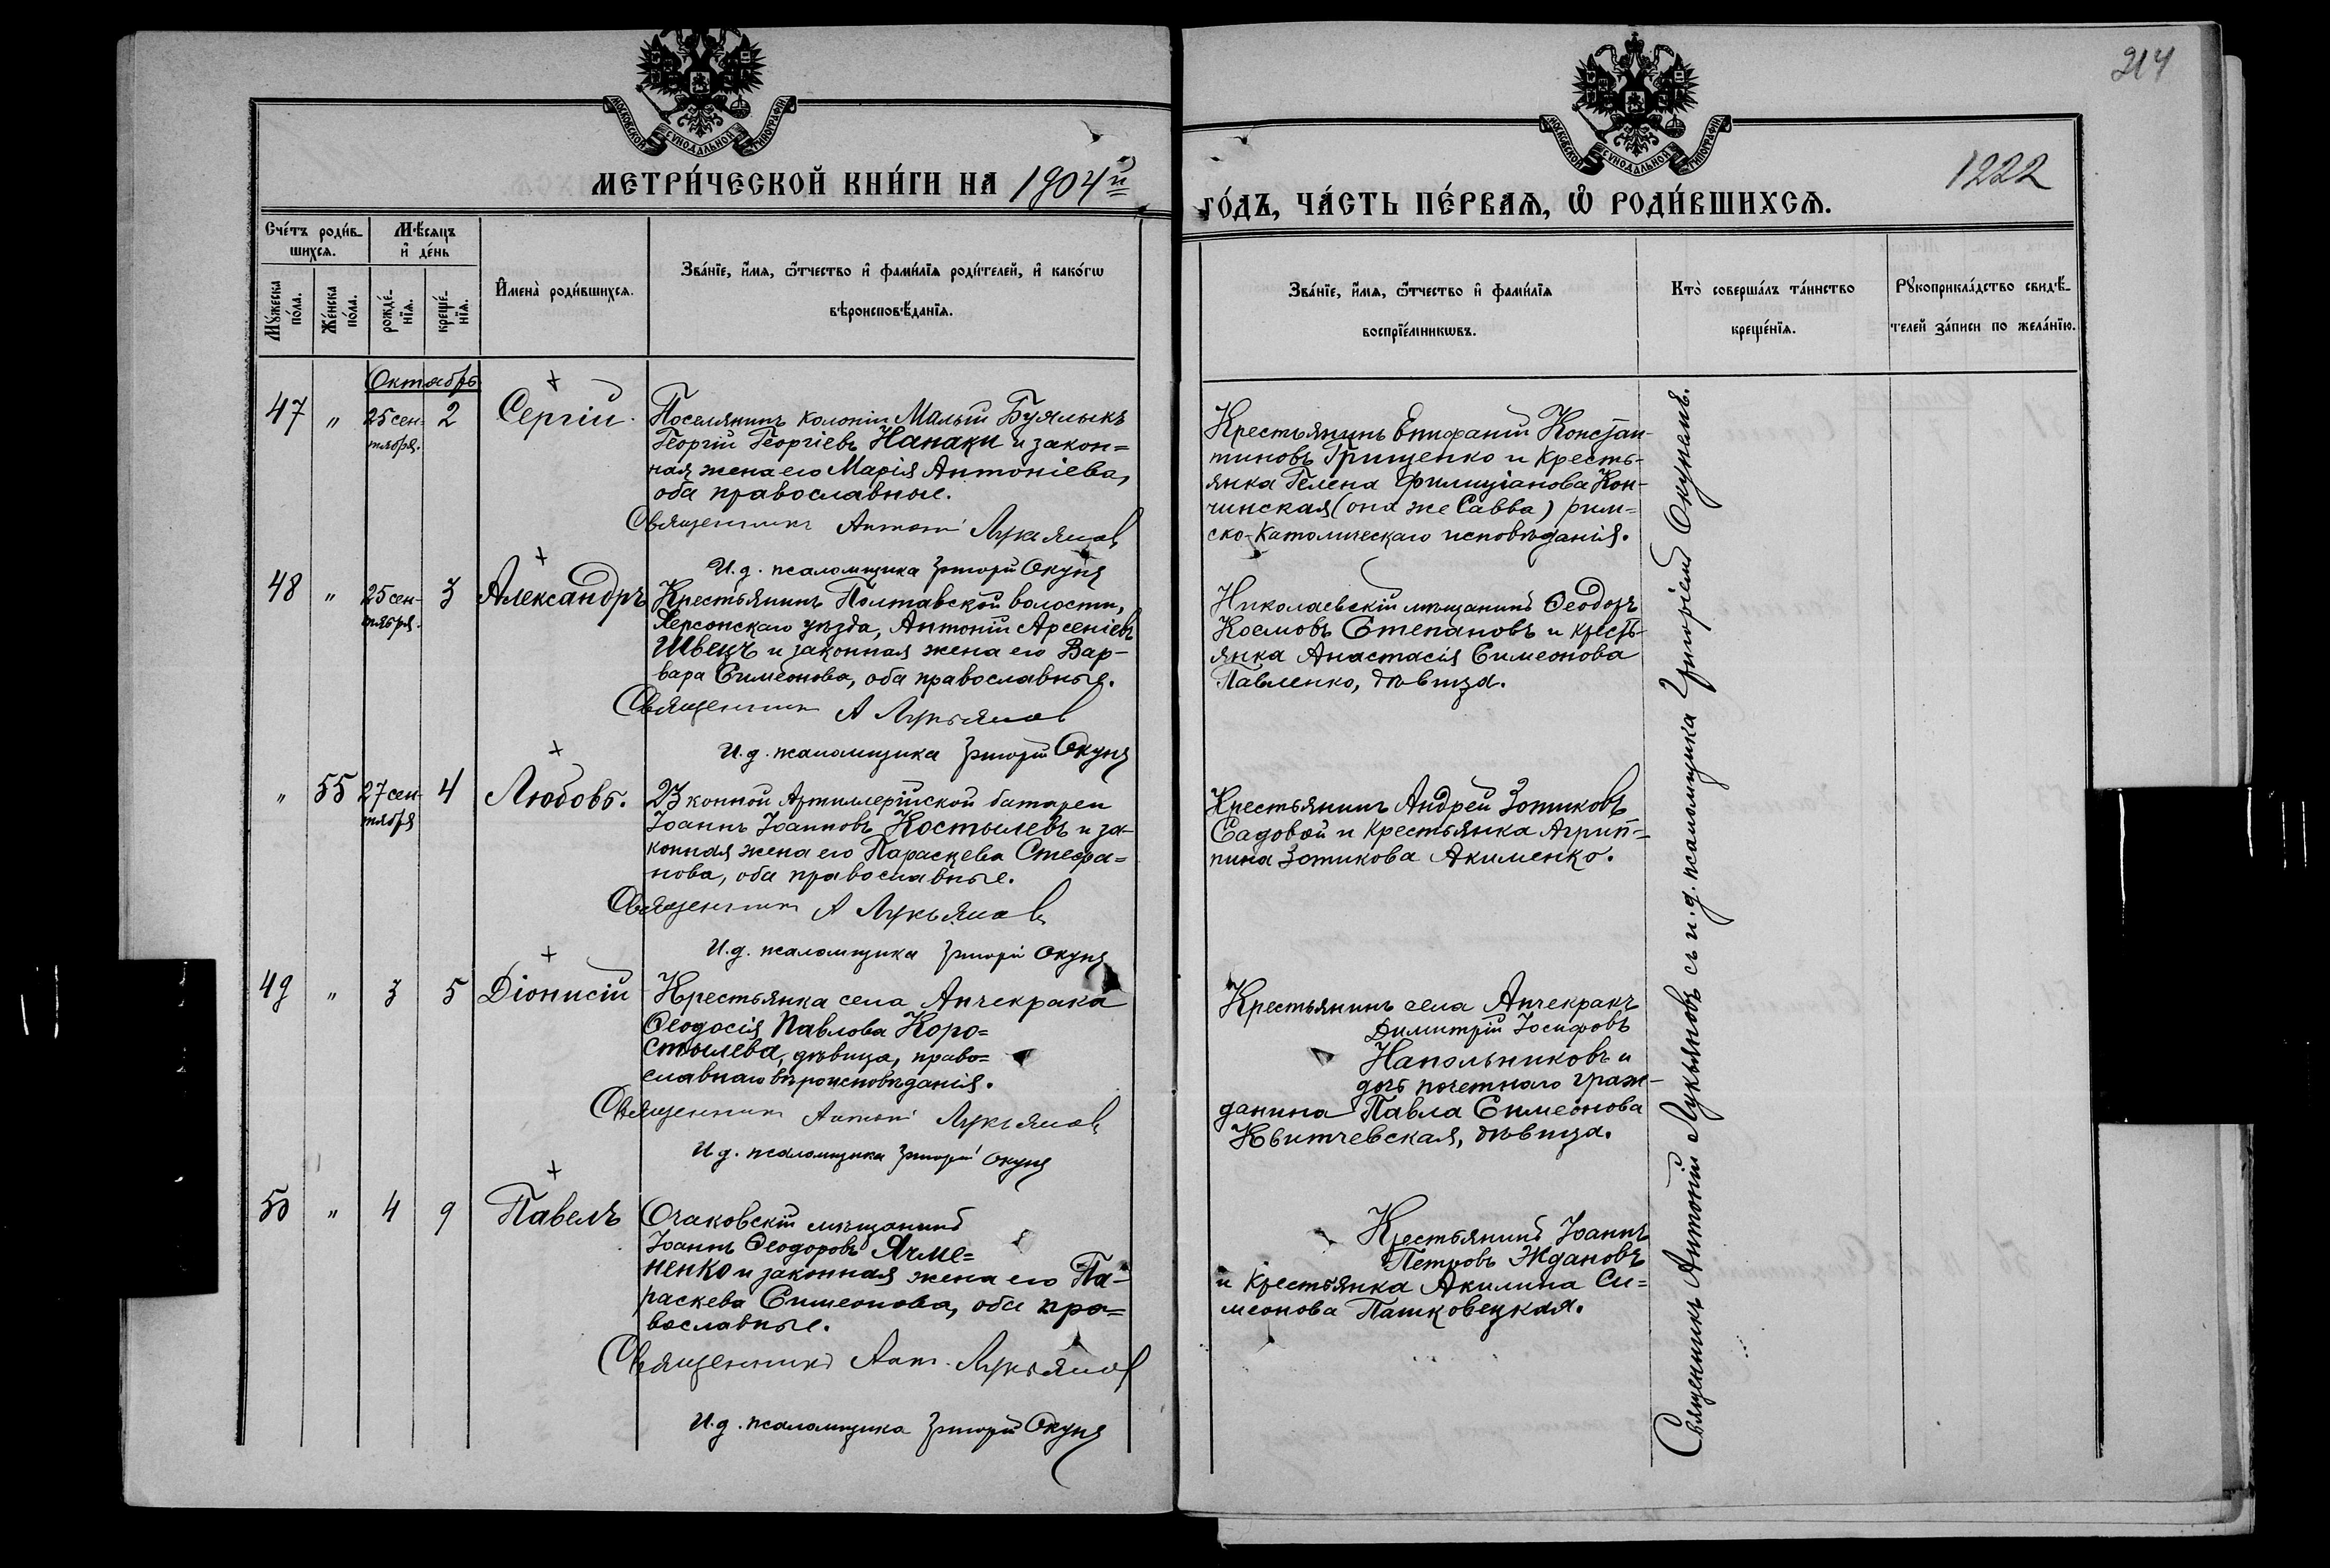 214
1222
МОСКОВСКОЙ СУНОДАЛЬНОЙ ТИПОГРАФІИ
МОСКОВСКОЙ СУНОДАЛЬНОЙ ТИПОГРАФІИ
МЕТРИ́ЧЕСКОЙ КНИ́ГИ НА 1904й
ГО́ДЪ, ЧА́СТЬ ПЕ́РВАѦ, Ѡ҆ РОДИ́ВШИХСѦ.
Сче́тъ роди́в-
шихсѧ.
Мꙋ́жеска по́ла.
Же́нска по́ла.
Мѣ́сѧцъ
и҆ де́нь
рожде́-
нїѧ.
креще́-
нїѧ.
И҆мена̀ роди́вшихсѧ.
Зва́нїе, и҆́мѧ, ѻ҆́тчество и҆ фами́лїѧ роди́телей, и҆ како́гѡ
вѣроисповѣ́данїѧ.
Зва́нїе, и҆́мѧ, ѻ҆́тчество и҆ фами́лїѧ
воспрїе́мникѡвъ.
Кто̀ соверша́лъ та́инство
креще́нїѧ.
Рꙋкоприкла́дство свидѣ́-
телей за́писи по жела́нїю.
Октябрь
47 " 25 сен-
тября. 2 Сергій.
Поселянинъ колоніи Малый Буялыкъ
Георгій Георгіевъ Напаки и закон=
ная жена его Марія Антоніева,
оба православные.
Священникъ Антоній Лукьяновъ
И. д. псаломщика Григорій Окунь
Крестьянинъ Епифаній Констан-
тиновъ Грищенко и кресть-
янка Гелена Филиціанова Кон-
чинская (она же Савва) рим=
ско-католическаго исповѣданія.
48 " 25 сен-
тября. 3 Александръ
Крестьянинъ Полтавской волости,
Херсонскаго уѣзда, Антоній Арсеніевъ
Швецъ и законная жена его Вар-
вара Симеонова, оба православные.
Священникъ А Лукьяновъ
И. д. псаломщика Григорій Окунь
Николаевскій мѣщанинъ Ѳеодоръ
Космовъ Степановъ и кресть-
янка Анастасія Симеонова
Павленко, дѣвица.
" 55 27 сен-
тября 4 Любовь.
23 конной Артиллерійской батареи
Іоаннъ Іоанновъ Костылевъ и за-
конная жена его Параскева Стефа=
нова, оба православные.
Священникъ А Лукьяновъ
И. д. псаломщика Григорій Окунь
Крестьянинъ Андрей Зотиковъ
Садовой и крестьянка Агрип=
пина Зотикова Акименко.
49 " 3 5 Діонисій
Крестьянка села Анчекрака
Ѳеодосія Павлова Коро=
стылева, дѣвица, право=
славнаго вѣроисповѣданія.
Священникъ Антоній Лукьяновъ
И. д. псаломщика Григорій Окунь
Крестьянинъ села Анчекракъ
Димитрій Іосифовъ
Напольниковъ и
дочь почетнаго граж-
данина Павла Симеонова
Квитчевская, дѣвица.
50 " 4 9 Павелъ
Очаковскій мѣщанинъ
Іоаннъ Ѳеодоровъ Ячме=
ненко и законная жена его Па-
раскева Симеонова, оба пра=
вославные.
Священникъ Ант. Лукьяновъ
И. д. псаломщика Григорій Окунь
Крестьянинъ Іоаннъ
Петровъ Ждановъ
и крестьянка Акилина Си=
меонова Пашковецкая.
Священникъ Антоній Лукьяновъ съ и. д. псаломщика Григоріемъ Окунемъ.